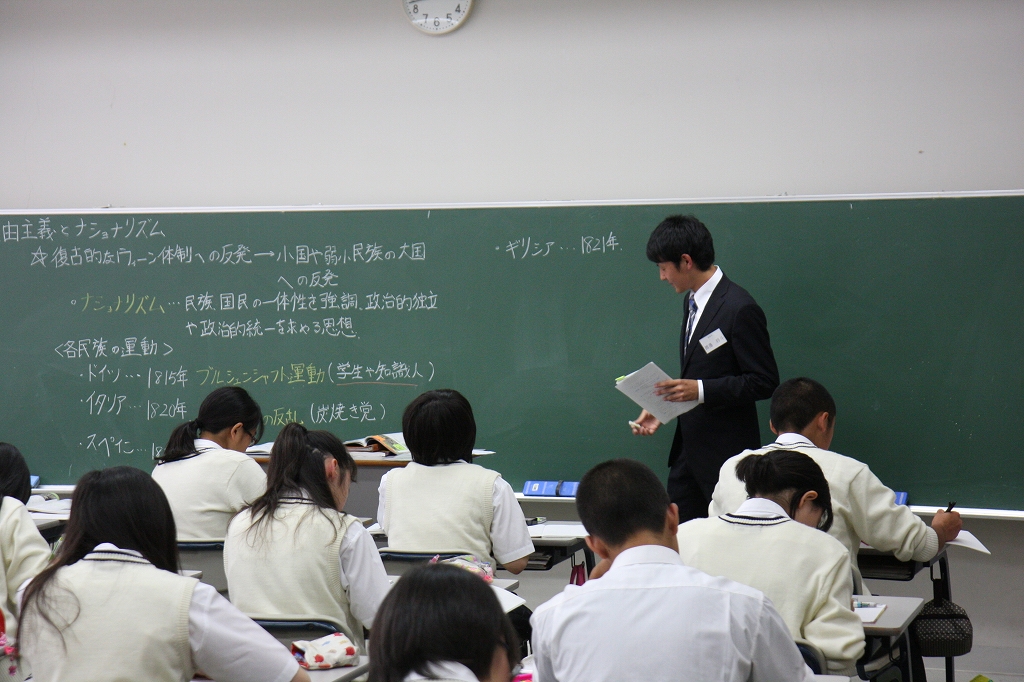 8 7 6 5 4
由主義とナショナリズム
☆復古的なウィーン体制への反発→小国や弱小民族の大国
への反発
・ナショナリズム…民族、国民の一体性を強調、政治的独立
や政治的統一を求める思想
<各民族の運動>
・ドイツ… 1815年 ブルシェンシャフト運動(学生や知識人)
・イタリア… 1820年 の反乱(炭焼き党)
・スペイン… 18
・ギリシア… 1821年.